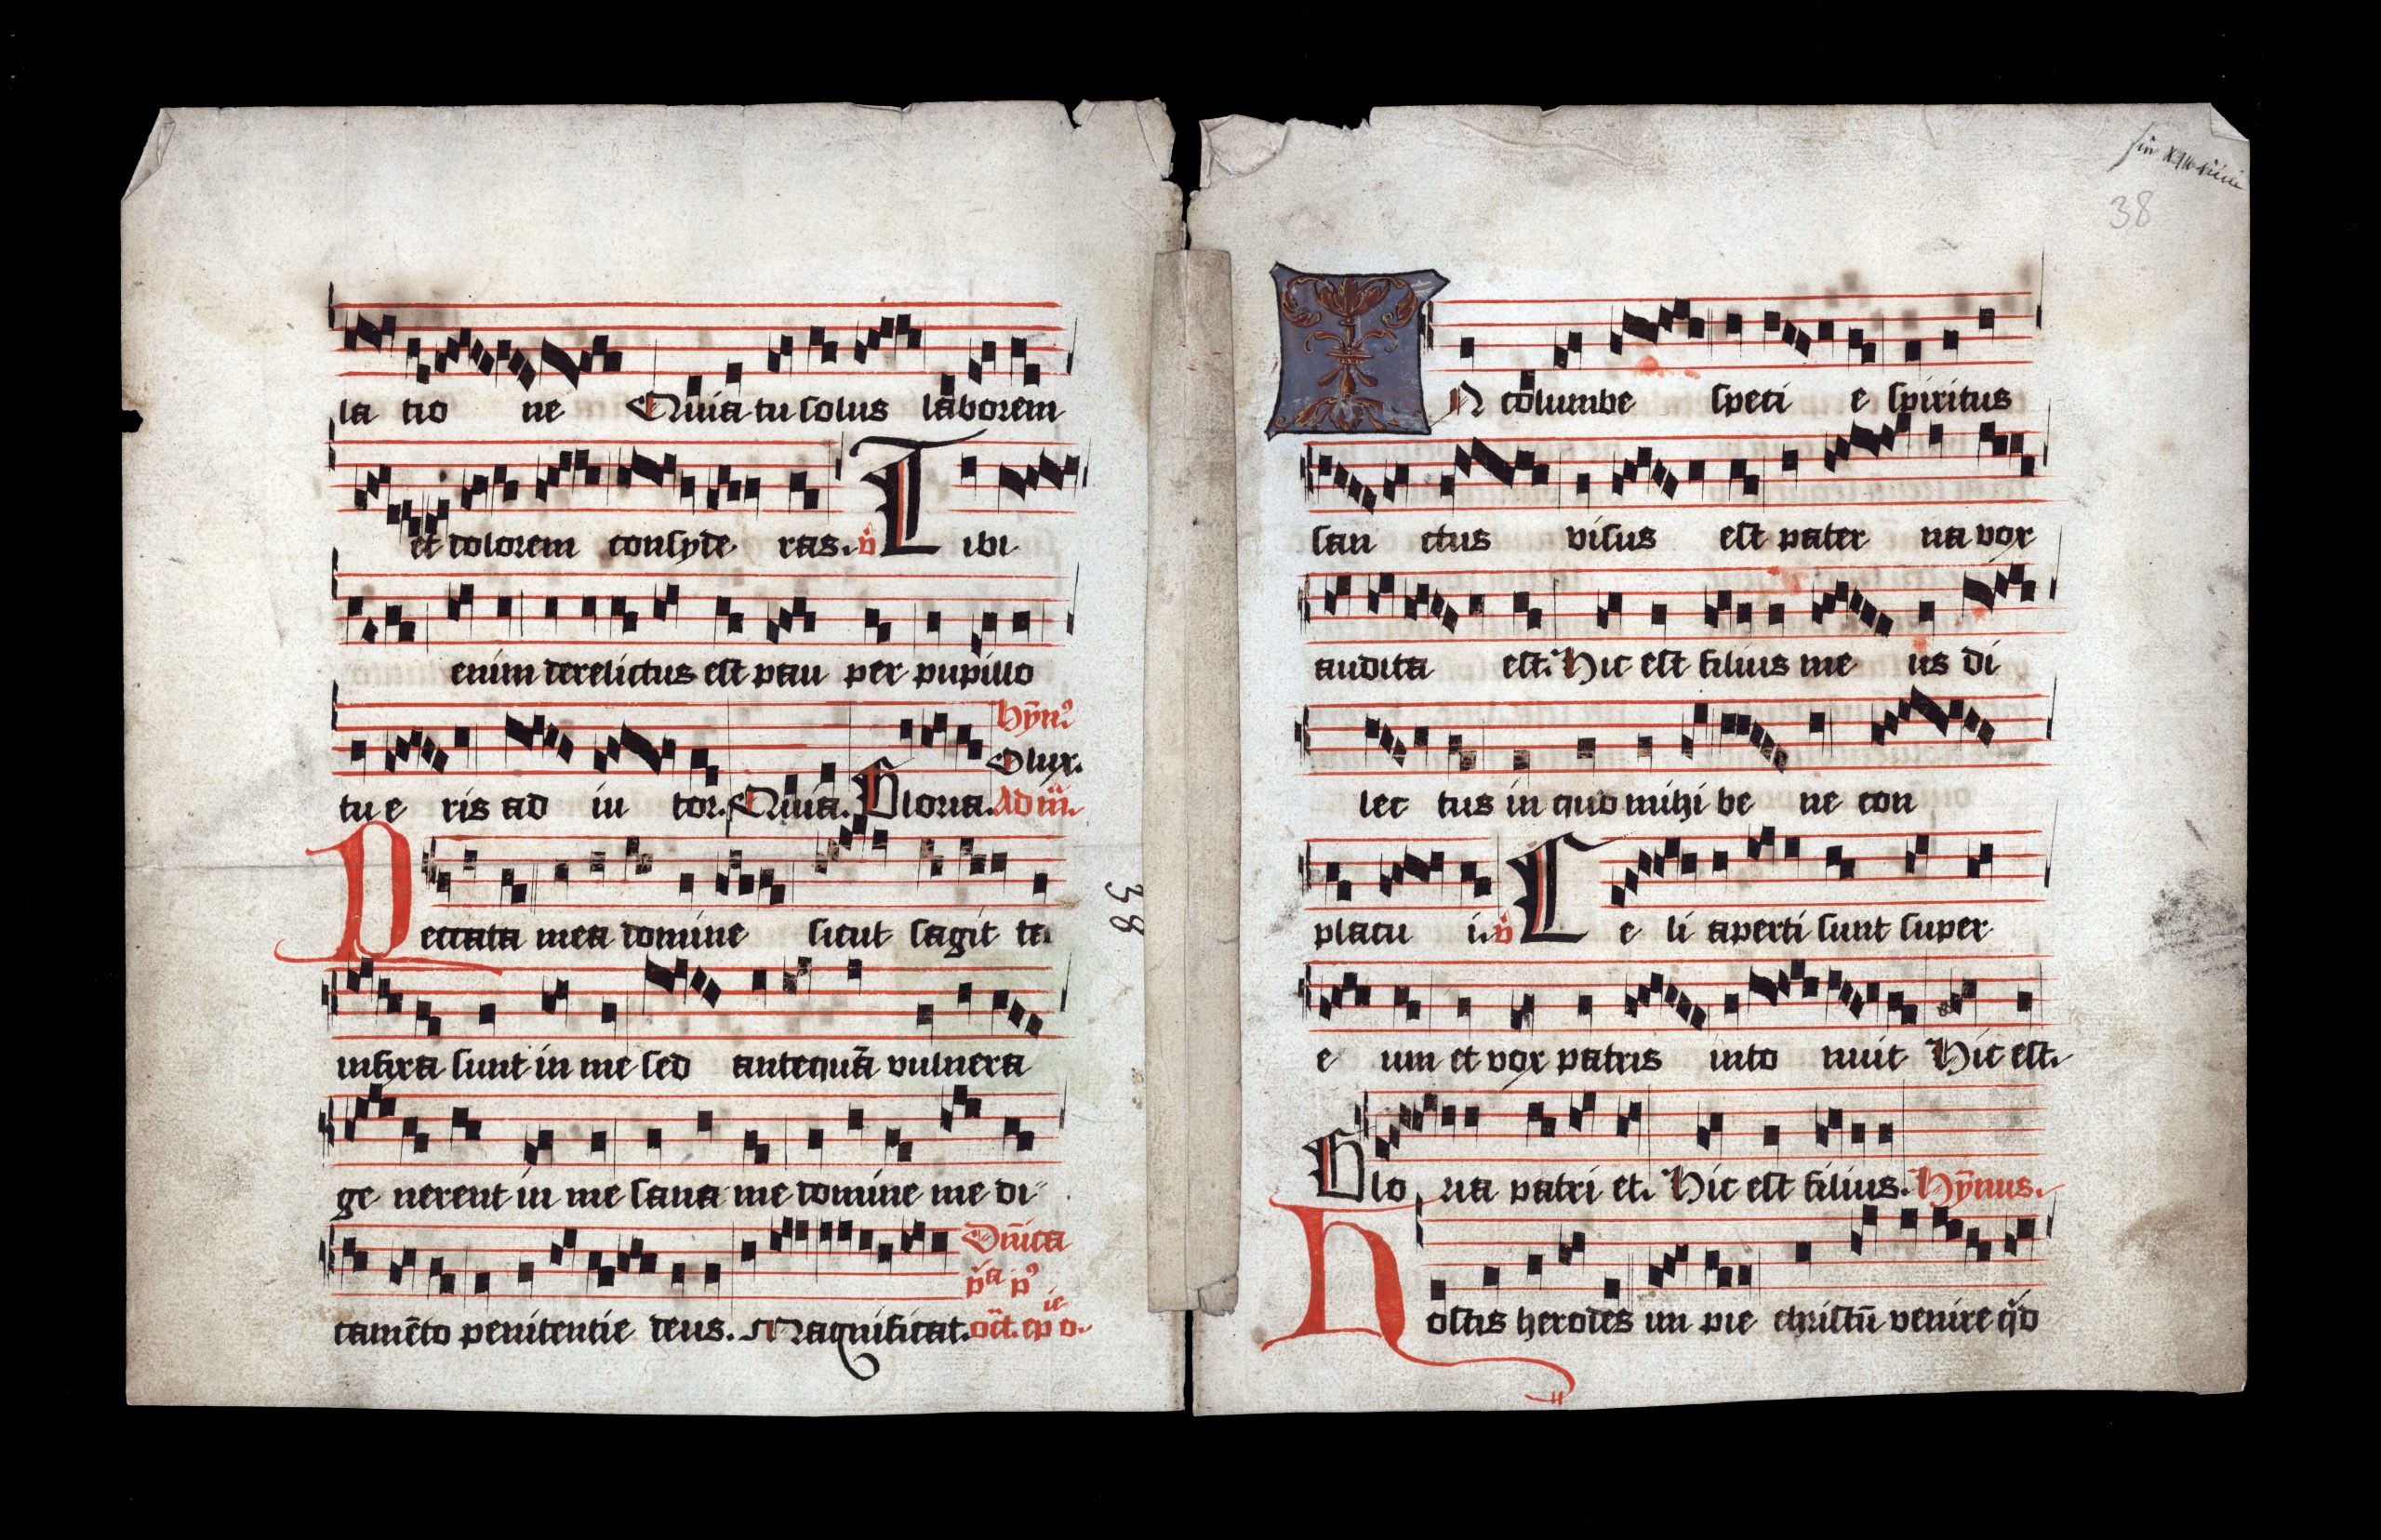 la tio ne Quia tu solus laborem
et dolorem consyde ras. v̊ Tibi
enim derelictus est pau per pupillo
hȳnꝰ
O lux.
tu e ris ad iu tor. Quia. Gloria. Ad m̄.
Peccata mea domine sicut sagit te
infixa sunt in me sed antequā vulnera
ge nerent in me sana me domine me di
Dn̄ica
p̄a pꝰ
camēto penitentie deus. Magnificat. oct̄. epīe
38
38
In columbe speci e spiritus
san ctus visus est pater na vox
audita est. Hic est filius me us di
lec tus in quo mihi be ne con
placu i. v̊ Ce li aperti sunt super
e um et vox patris into nuit Hic est.
Glo ria patri et. Hic est filius. Hȳnus.
Hostis herodes im pie christū venire qd